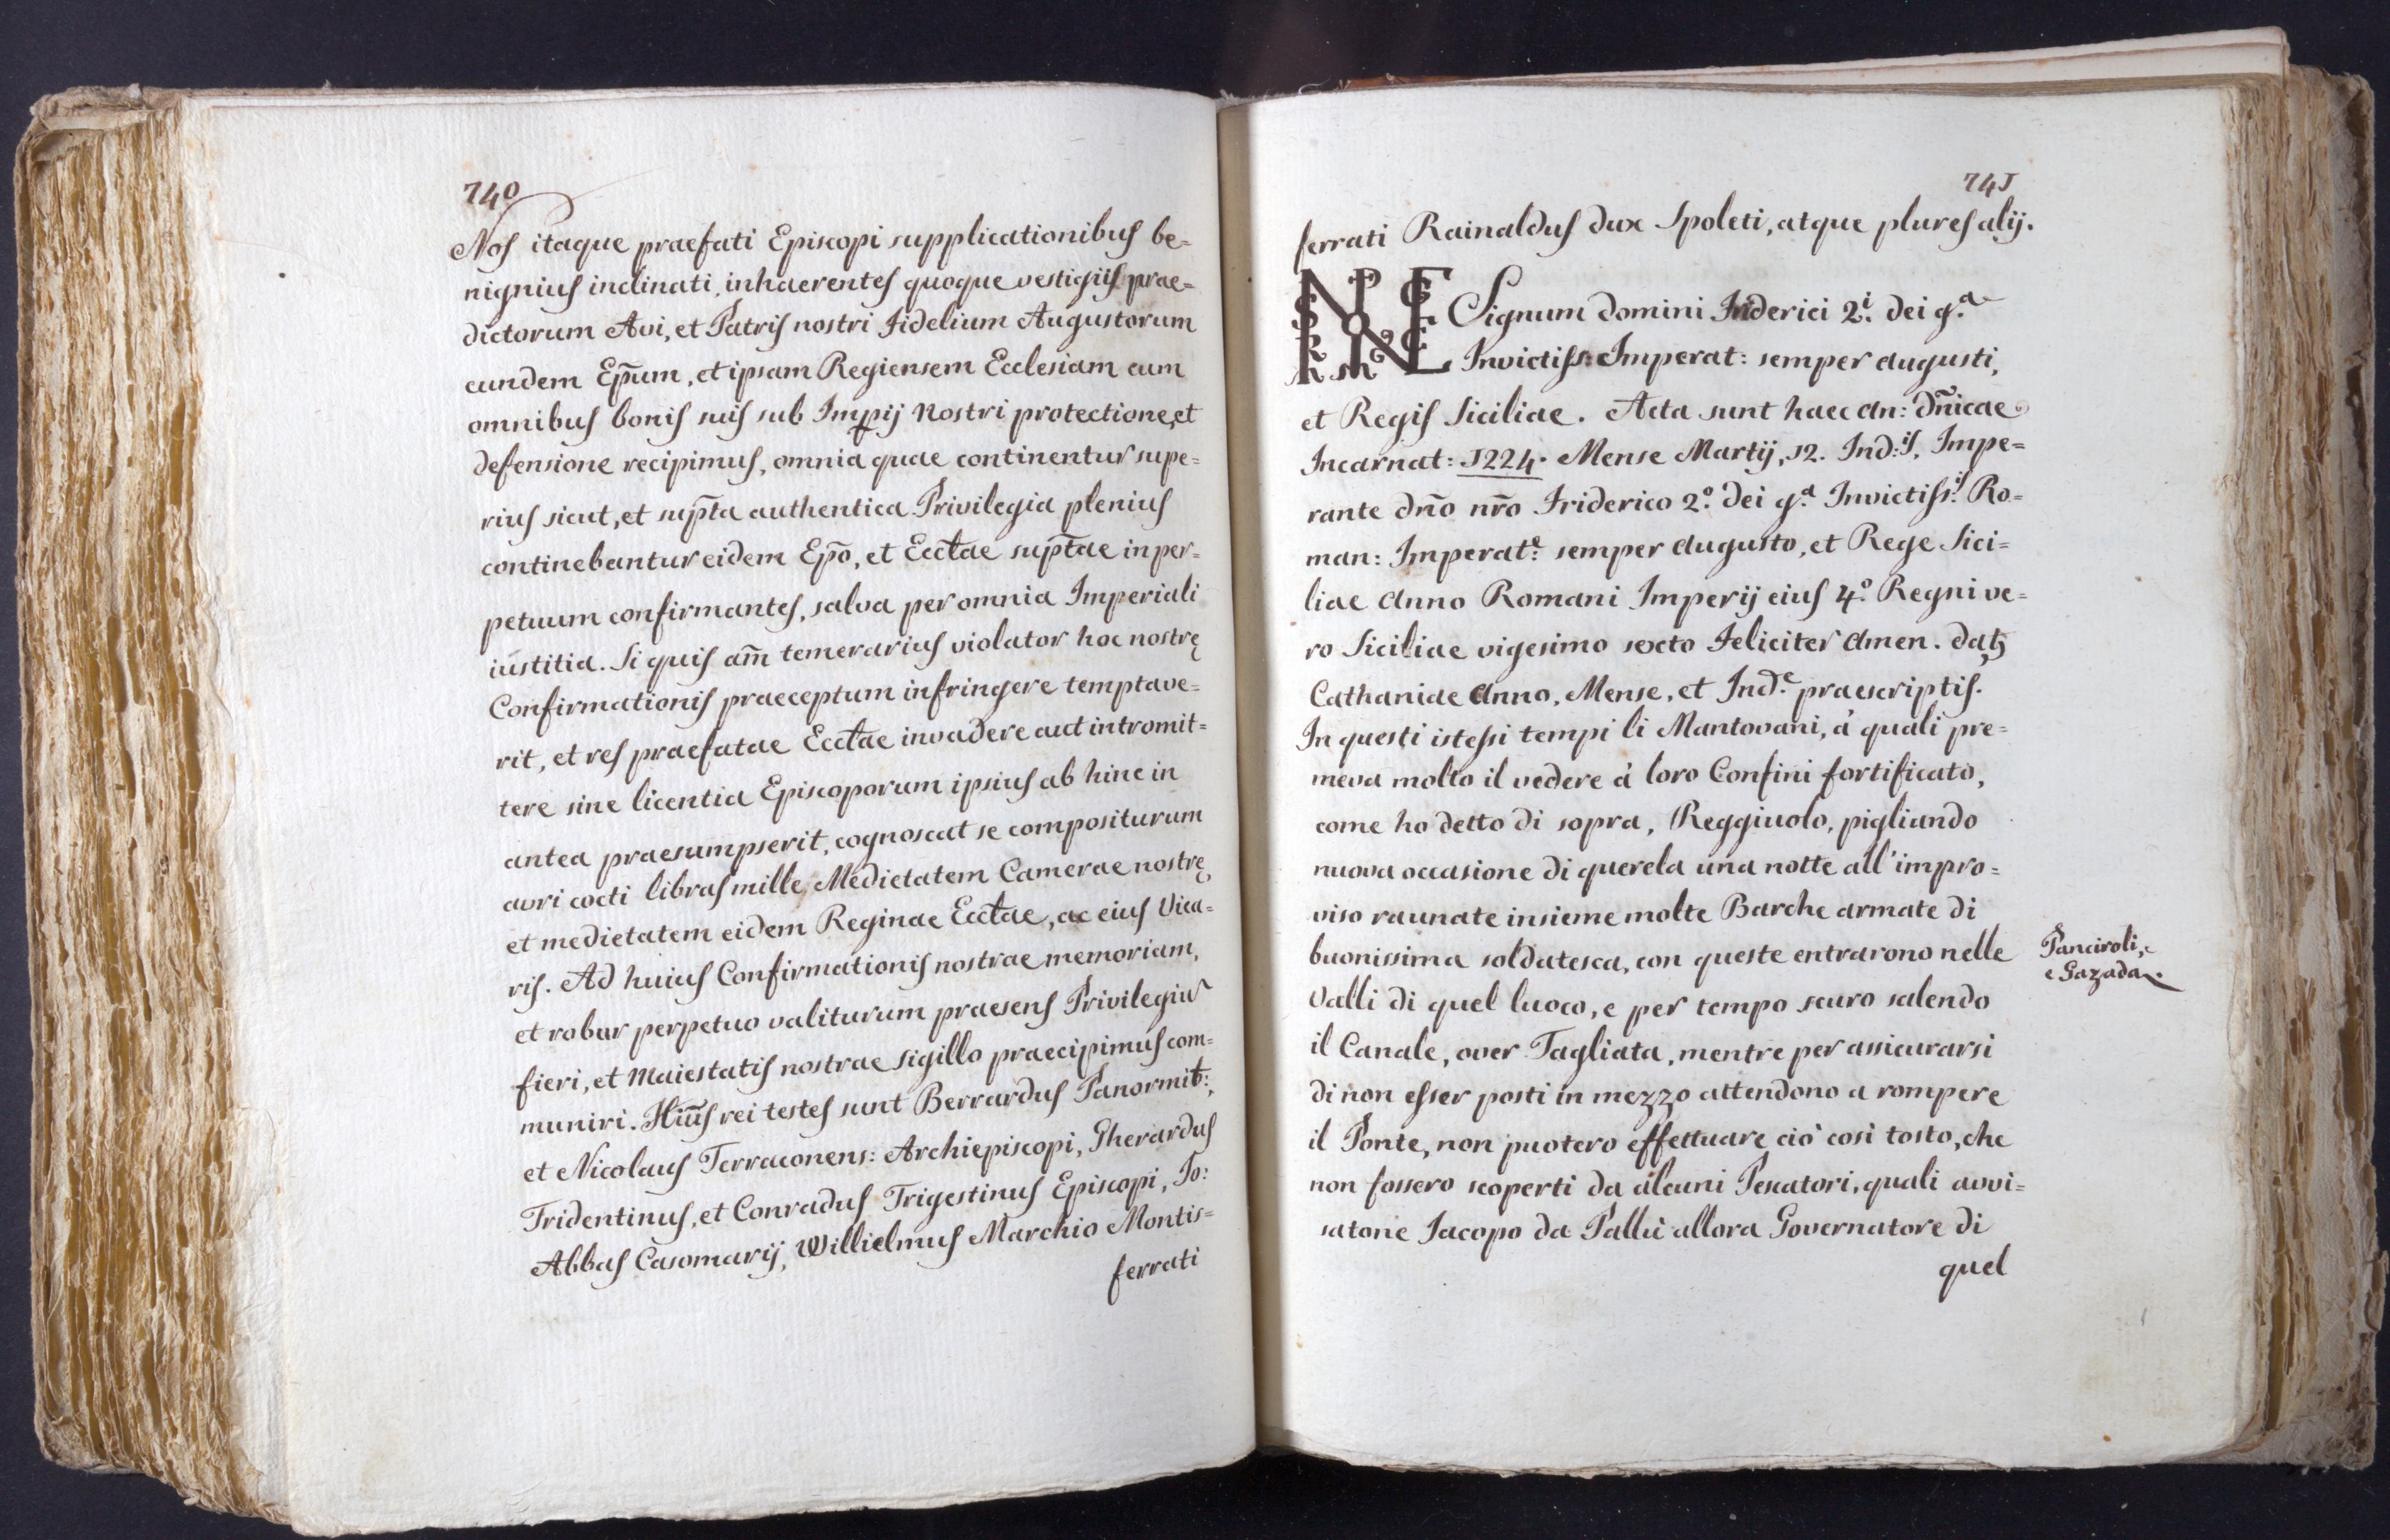 740
Nos itaque praefati Episcopi supplicationibus be=
nignius inclinati, inhaerentes quoque vestigiis prae=
dictorum Avi, et Patris nostri fidelium Augustorum
eundem Ep̃um, et ipsam Regiensem Ecclesiam cum
omnibus bonis suis sub Impij Nostri protectione, et
defensione recipimus, omnia quae continentur supe=
rius sicut, et sup̃ta authentica Privilegia plenius
continebantur eidem Ep̃o, et Ecctae sup̃tae in per=
petuum confirmantes, salva per omnia Imperiali
iustitia. Si quis am̃ temerarius violator hoc nostrę
Confirmationis praeceptum infringere temptave=
rit, et res praefatae Ecctae invadere aut intromit=
tere sine licentia Episcoporum ipsius ab hinc in
antea praesumpserit, cognoscat se compositurum
auri cocti libras mille, Medietatem Camerae nostrę,
et medietatem eidem Reginae Ecctae, ac eius Vica=
ris. Ad huius Confirmationis nostrae memoriam,
et robur perpetuo valiturum praesens Privilegiũ
fieri, et Maiestatis nostrae sigillo praecipimus com=
muniri. Hiũs rei testes sunt Berrardus Panormit:,
et Nicolaus Terraconens: Archiepiscopi, Gherardus
Tridentinus, et Conradus Trigestinus Episcopi, Io:
Abbas Casomarij, Willielmus Marchio Montis=
ferrati
741
ferrati Rainaldus dux Spoleti, atque plures alij.
Signum domini Friderici 2.i dei g.a
Invictiss: Imperat: semper Augusti,
et Regis Siciliae. Acta sunt haec An: dñicae
Incarnat: 1224. Mense Martij, 12. Ind:is, Impe=
rante dño nr̃o Friderico 2.o dei g.a Invictiss.is Ro=
man: Imperat.e semper Augusto, et Rege Sici=
liae Anno Romani Imperij eius 4.o Regni ve=
ro Siciliae vigesimo sexto Feliciter Amen. Datꝫ
Cathaniae Anno, Mense, et Ind.e praescriptis.
In questi istessi tempi li Mantovani, à quali pre=
meva molto il vedere à loro Confini fortificato,
come ho detto di sopra, Reggiuolo, pigliando
nuova occasione di querela una notte all'impro=
viso raunate insieme molte Barche armate di
buonissima soldatesca, con queste entrarono nelle
Valli di quel luoco, e per tempo scuro salendo
il Canale, over Tagliata, mentre per assicurarsi
di non esser posti in mezzo attendono a rompere
il Ponte, non puotero effettuare ciò così tosto, che
non fossero scoperti da alcuni Pescatori, quali avvi=
satone Jacopo da Pallù allora Governatore di
quel
Panciroli,
e Gazada.